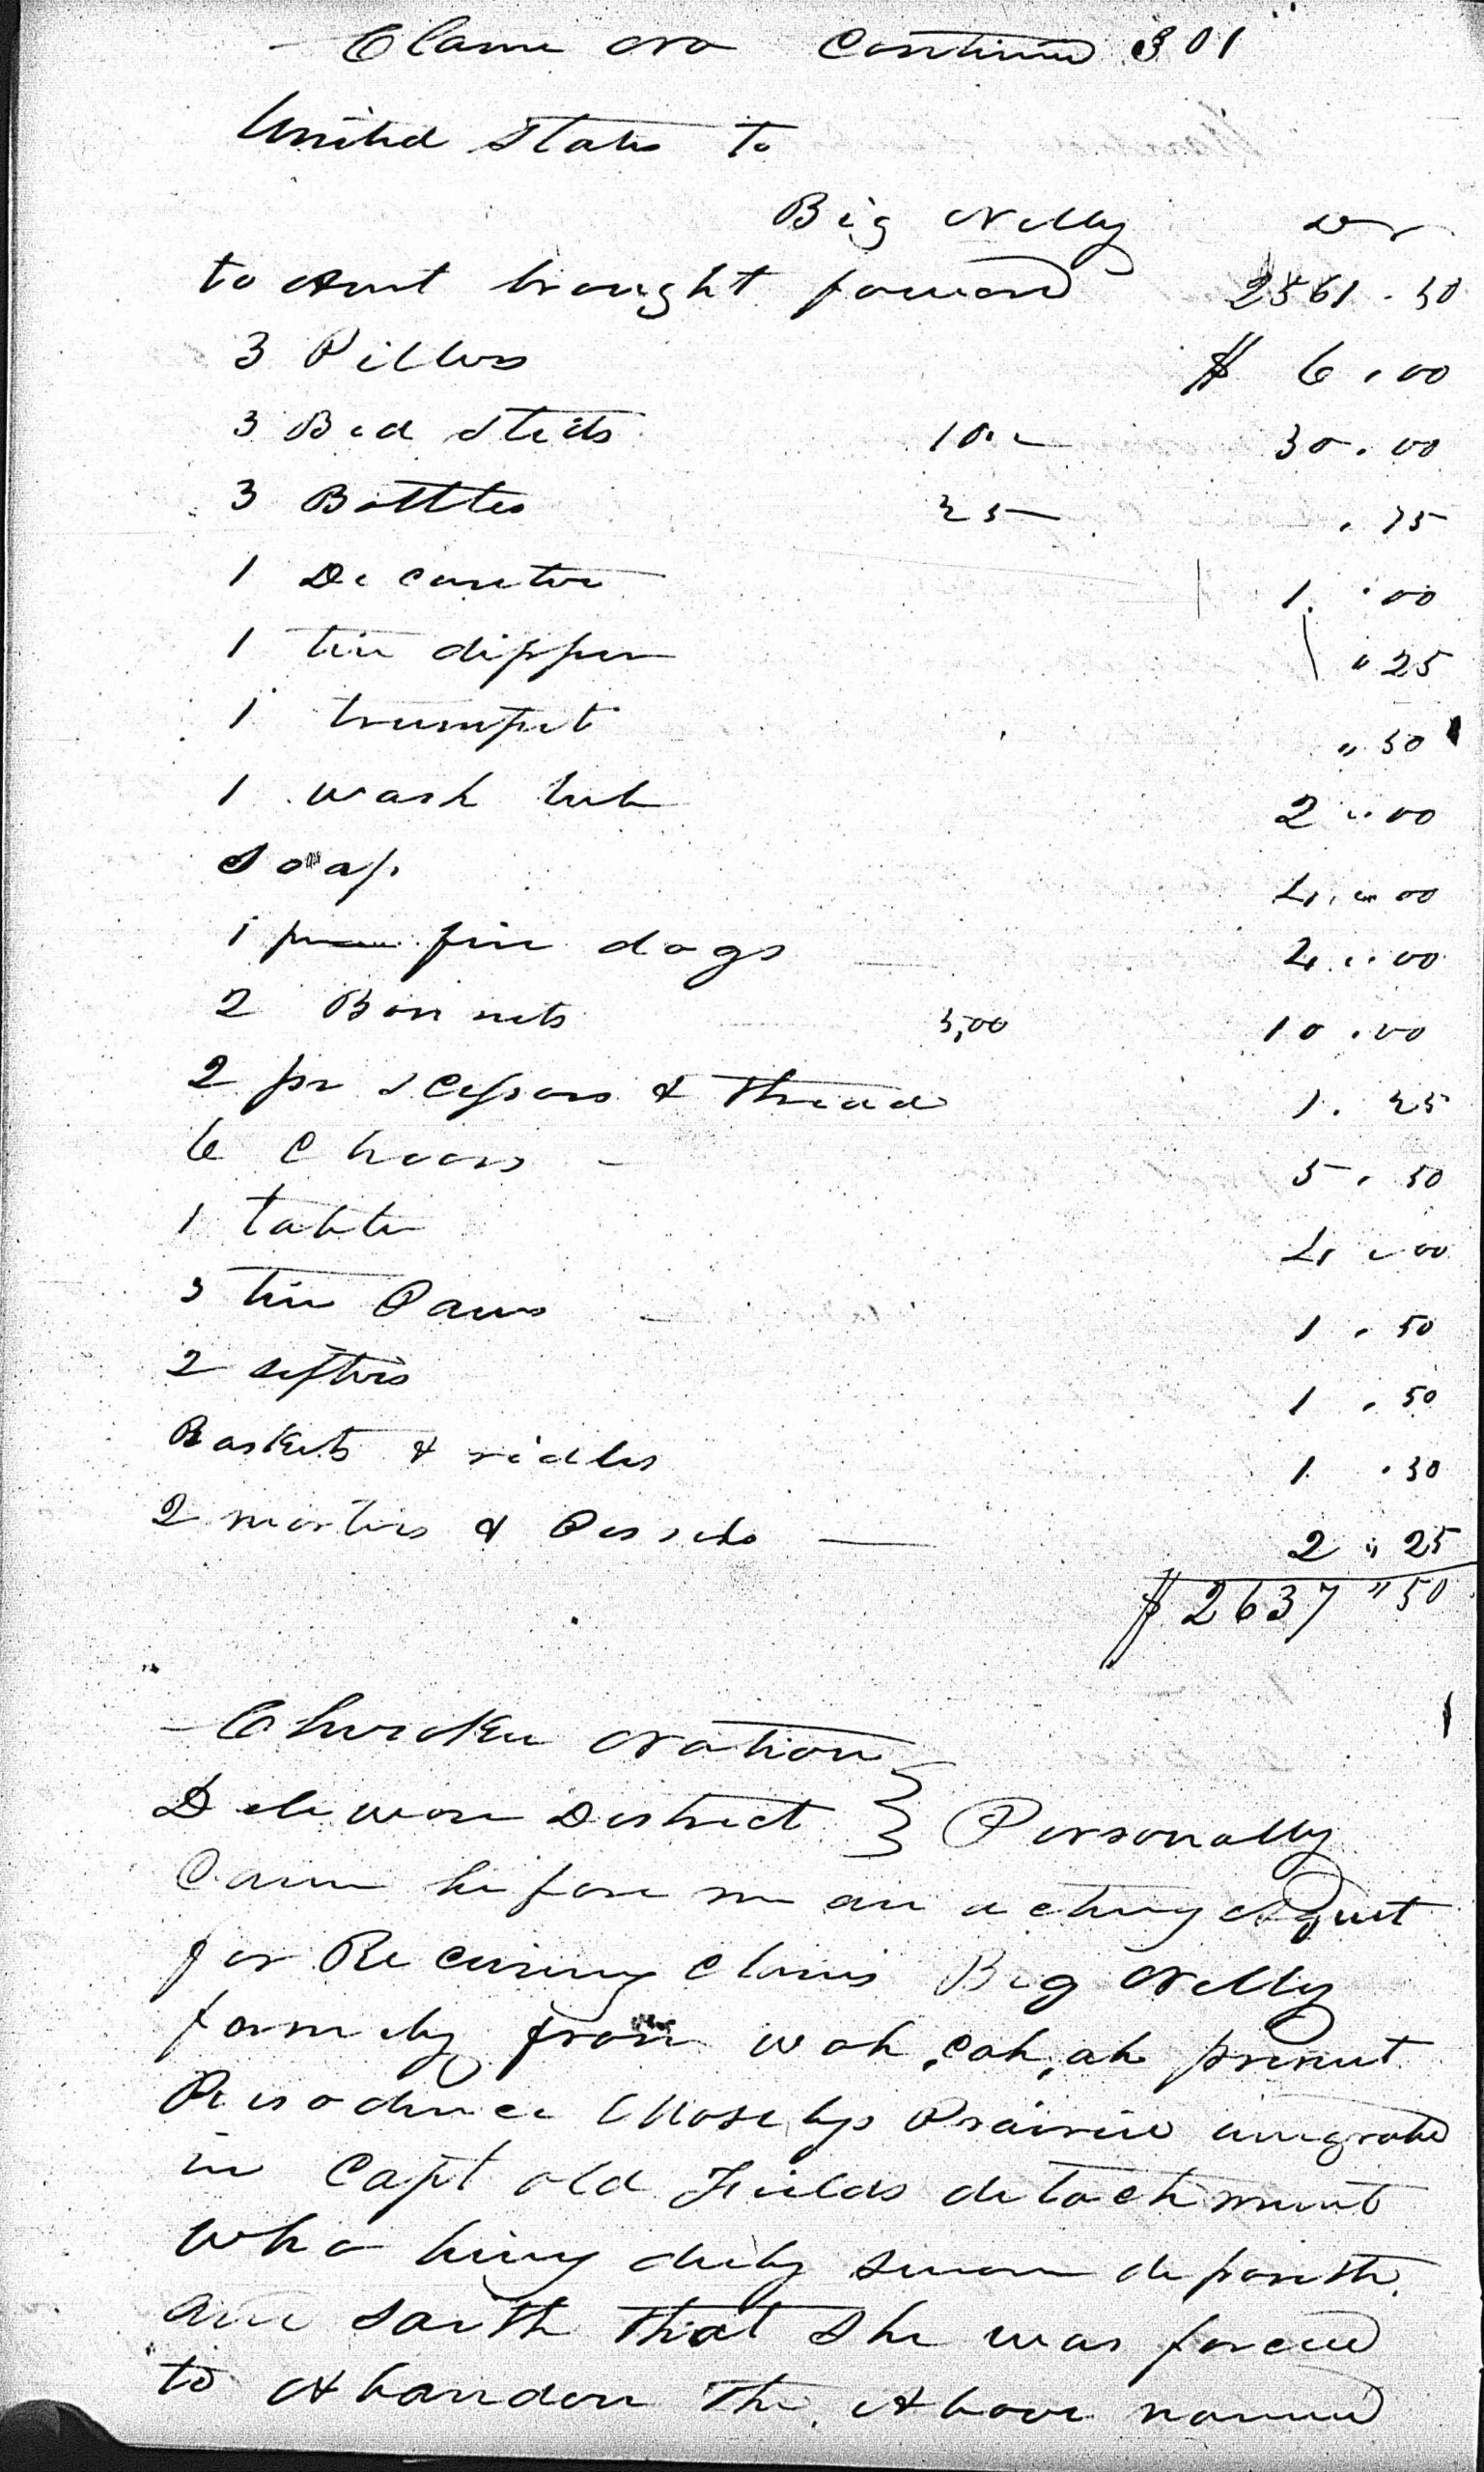 Clame No Continued 301
United States to
Big Nelly Dr
to Amt brought forward 2561.50
3 Pillers $ 6.00
3 Bed Steds 10.. 30.00
3 Botttles 25 .75
1 Decanter 1.00
1 tin dipper " 25
1 trumpet " 50
1 wash tub 2 " 00
Soap 4 " 00
1 fire dogs 4 " 00
2 Bonnets 5,00 10.00
2 pr Scissors & Thread 1.25
6 Chears 5.50
1 table 4.00
3 tin Pans 1.50
2 sifters 1.50
Baskets & ridles 1.50
2 morters & Pessels 2 " 25
$ 2637 " 50
Cherokee Nation
Deleware District } Personally
Came before me an acting Agent
for Receiving Claims Big Nelly
formely from Wah,cah,ah present
Resodence Moselys Prairie emigrated
in Capt old Fields detachment
Who being duly sworn deposeth
and saith that She was forced
to Abandon The Above named